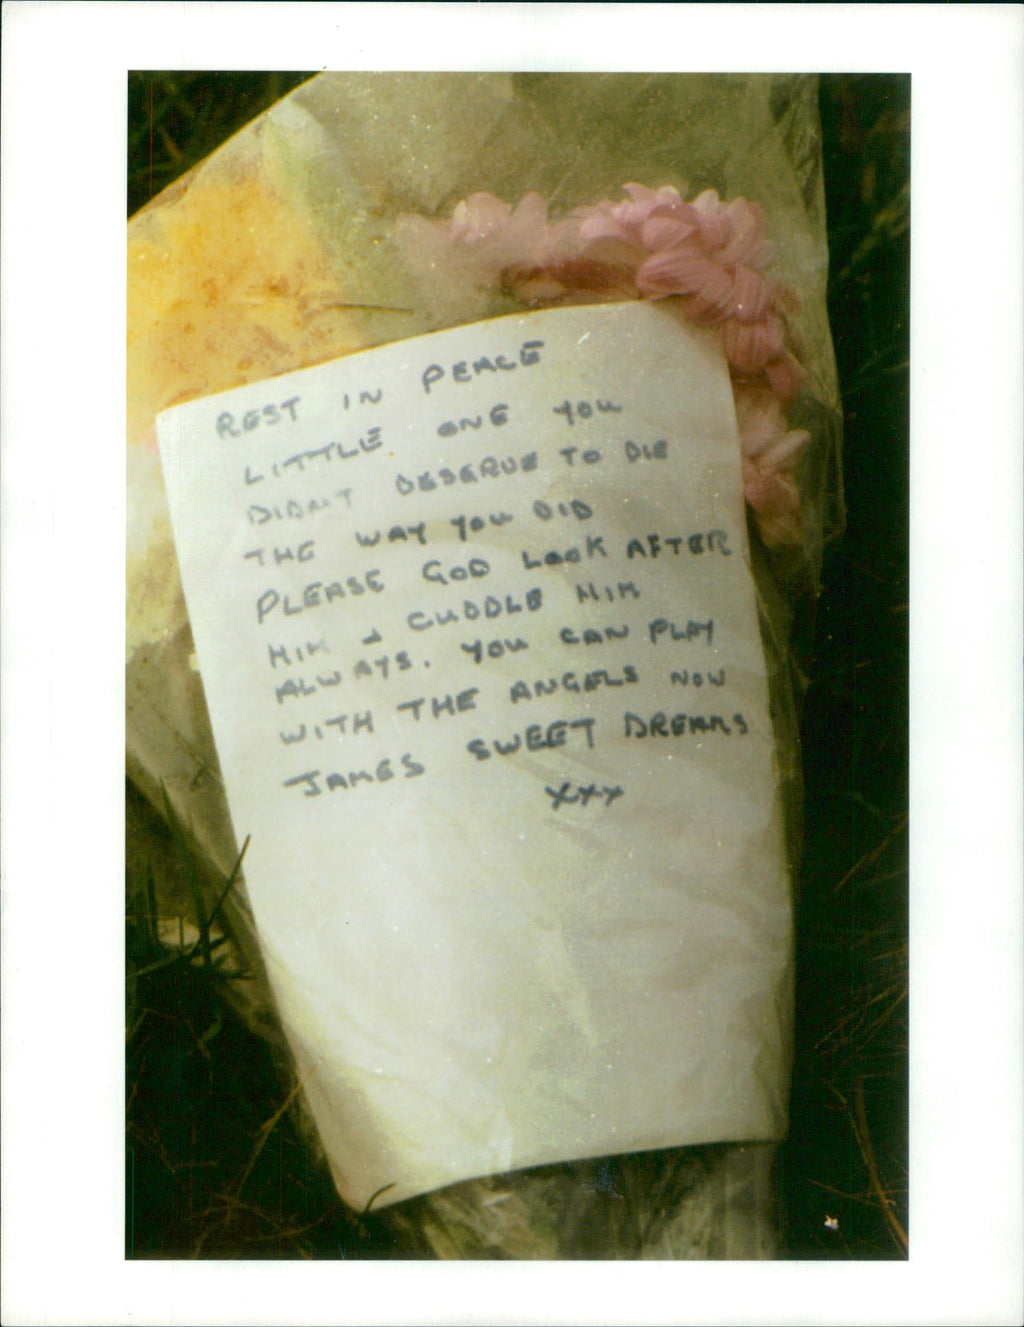 REST IN PEACE
LITTLE ONE YOU
DIDNT DESERVE TO DIE
THE WAY YOU DID
PLEASE GOD LOOK AFTER
HIM & CUDDLE HIM
ALWAYS. YOU CAN PLAY
WITH THE ANGELS NOW
JAMES SWEET DREAMS
xxx